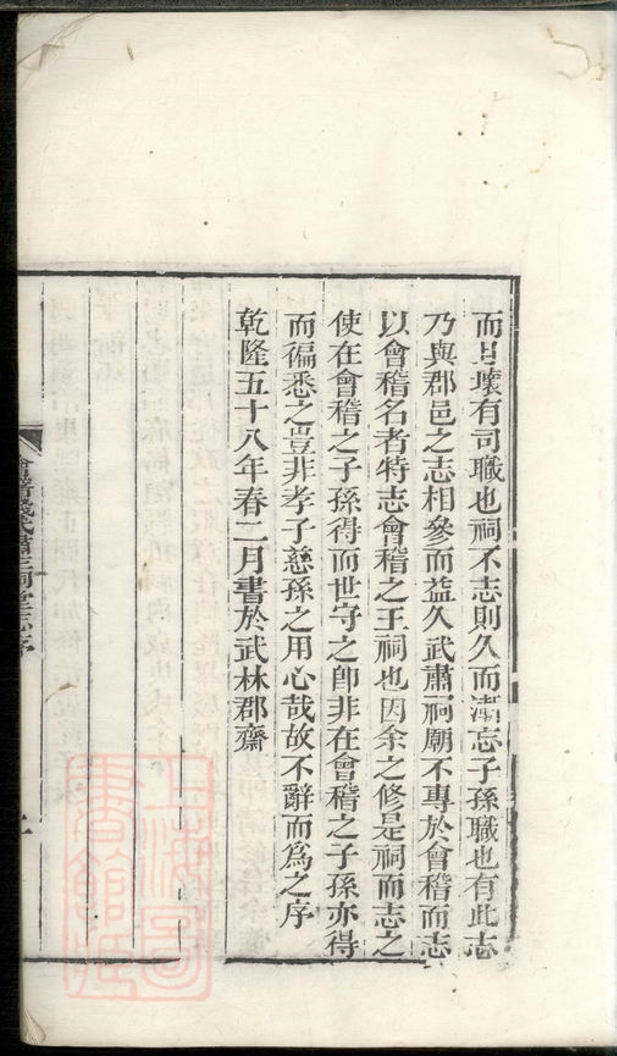 而且壞有司職也祠不志則久而漸忘子孫職也有此志
乃與郡邑之志相參而益久武肅祠廟不專於會稽而志
以會稽名者特志會稽之王祠也因余之修是祠而志之
使在會稽之子孫得而世守之卽非在會稽之子孫亦得
而徧悉之豈非孝子慈孫之用心哉故不辭而爲之序
乾隆五十八年春二月書於武林郡齋
會稽錢武肅王祠堂志序
上海圖
書館藏